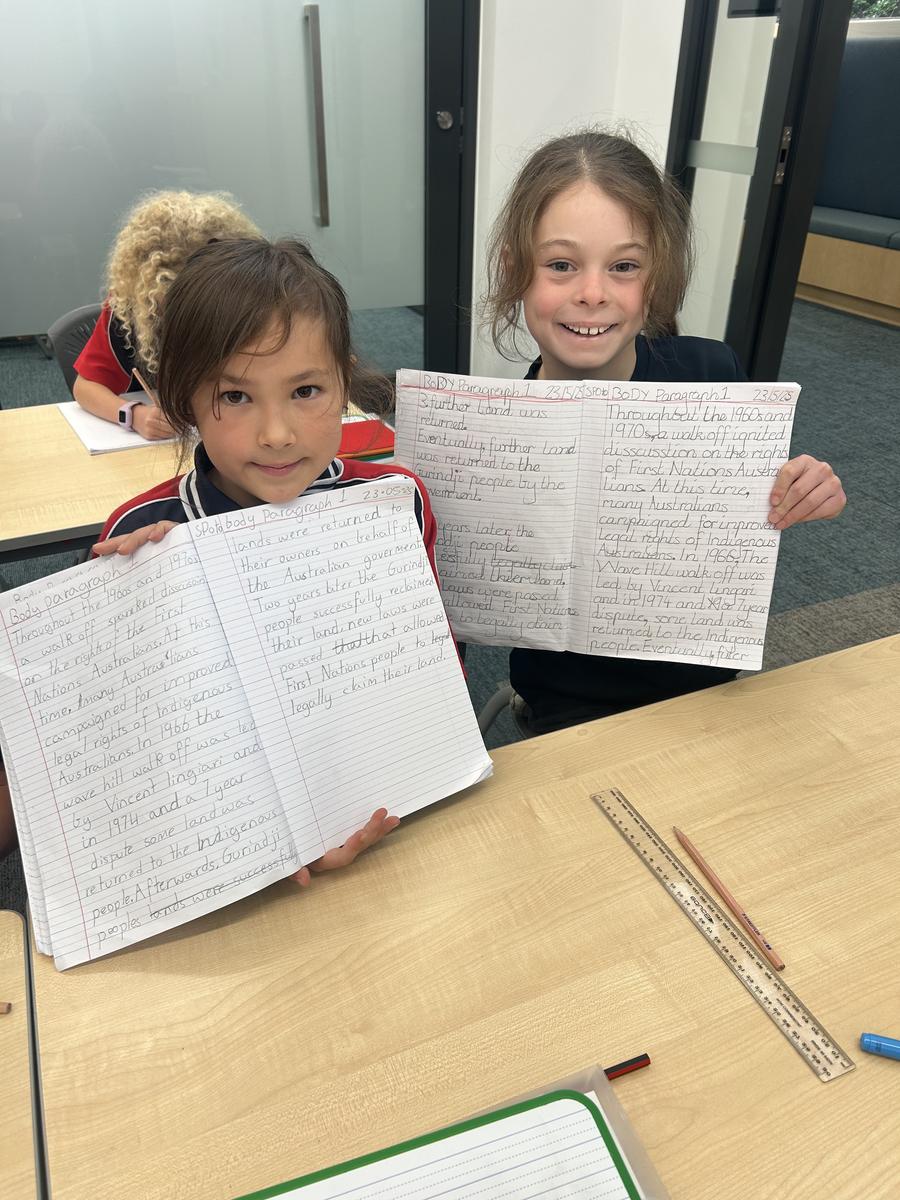 Body paragraph 1
Throughout the 1960s and 1970s
a walk off sparked discusion
on the rights of the First
Nations Australians. At this
time, many Australians
campaigned for improved
legal rights of Indigenous
Australians. In 1966 the
wave hill walk off was led
by Vincent lingiari and
in 1974 and a 7 year
dispute some land was
returned to the Indigenous
people. Afterwards, Gurindji
peoples lands were successful
Spoto body Paragraph 1 23-05-23
lands were returned to
their owners on behalf of
the Australian goverment.
Two years later the Gurindji
people successfully reclaimed
their land, new laws were
passed that that allowed
First Nations people to legal
legally claim their land.
BODY Paragraph 1 23/5/23
3 further Land was
returned.
Eventually, further land
was returned to the
Gurindji people by the
years later the
people
laws were passed
allowed First Nations
to legally claim
SPoto Body Paragraph 1 23/5/23
Throughout the 1960s and
1970s, a walk off ignited
disscussion on the rights
of First Nations Austra
lians. At this time,
many Australians
campaigned for improve
legal rights of Indigenous
Australians. In 1966, The
Wave Hill walk off was
led by Vincent Lingari
and in 1974 and 7 year
dispute, some land was
returned to the Indigenous
people. Eventually,